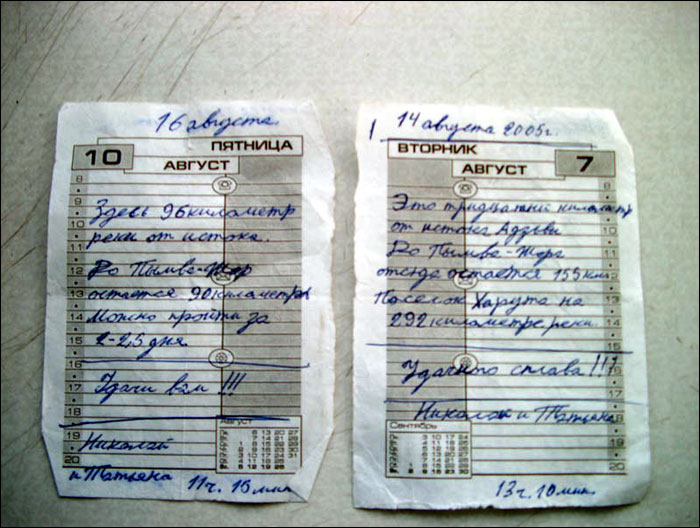 16 августа
10
ПЯТНИЦА
АВГУСТ
8
9
10
11
12
13
14
15
16
17
18
19
20
Здесь 96 километр
реки от истока.
До Пымва-Шор
остается 90 километров
Можно пройти за
2-2,5 дня
Удачи вам !!!
Николай
и Татьяна 11ч. 15 мин
Август
14 августа 2005г.
ВТОРНИК
7
АВГУСТ
8
9
10
11
12
13
14
15
16
17
18
19
20
Это тридцатый километр
от истока Адзьвы
До Пымва-Шора
отсюда остается 155 км
Поселок Харута на
292 километре реки.
Удачного сплава !!!
Николай и Татьяна
Сентябрь
13ч. 10 мин.